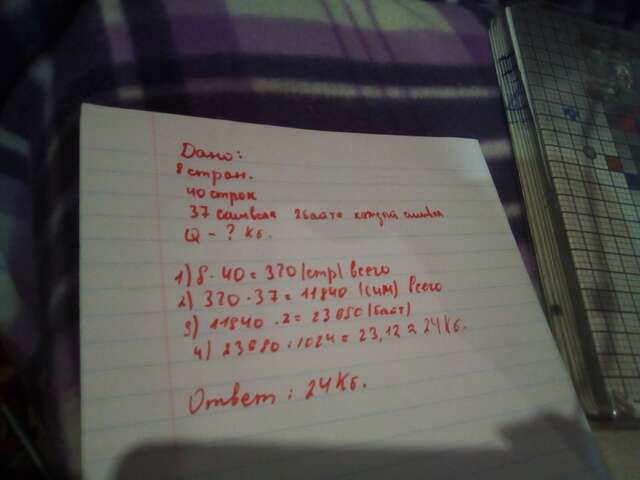 Дано:
8 стран.
40 строк
37 символа 2байта каждый символ
Q - ? Кб.
1) 8 · 40 = 320 (стр) всего
2) 320 · 37 = 11840 (сим) всего
3) 11840 · 2 = 23680 (байт)
4) 23680 : 1024 = 23,12 ≈ 24 Кб.
Ответ : 24 Кб.